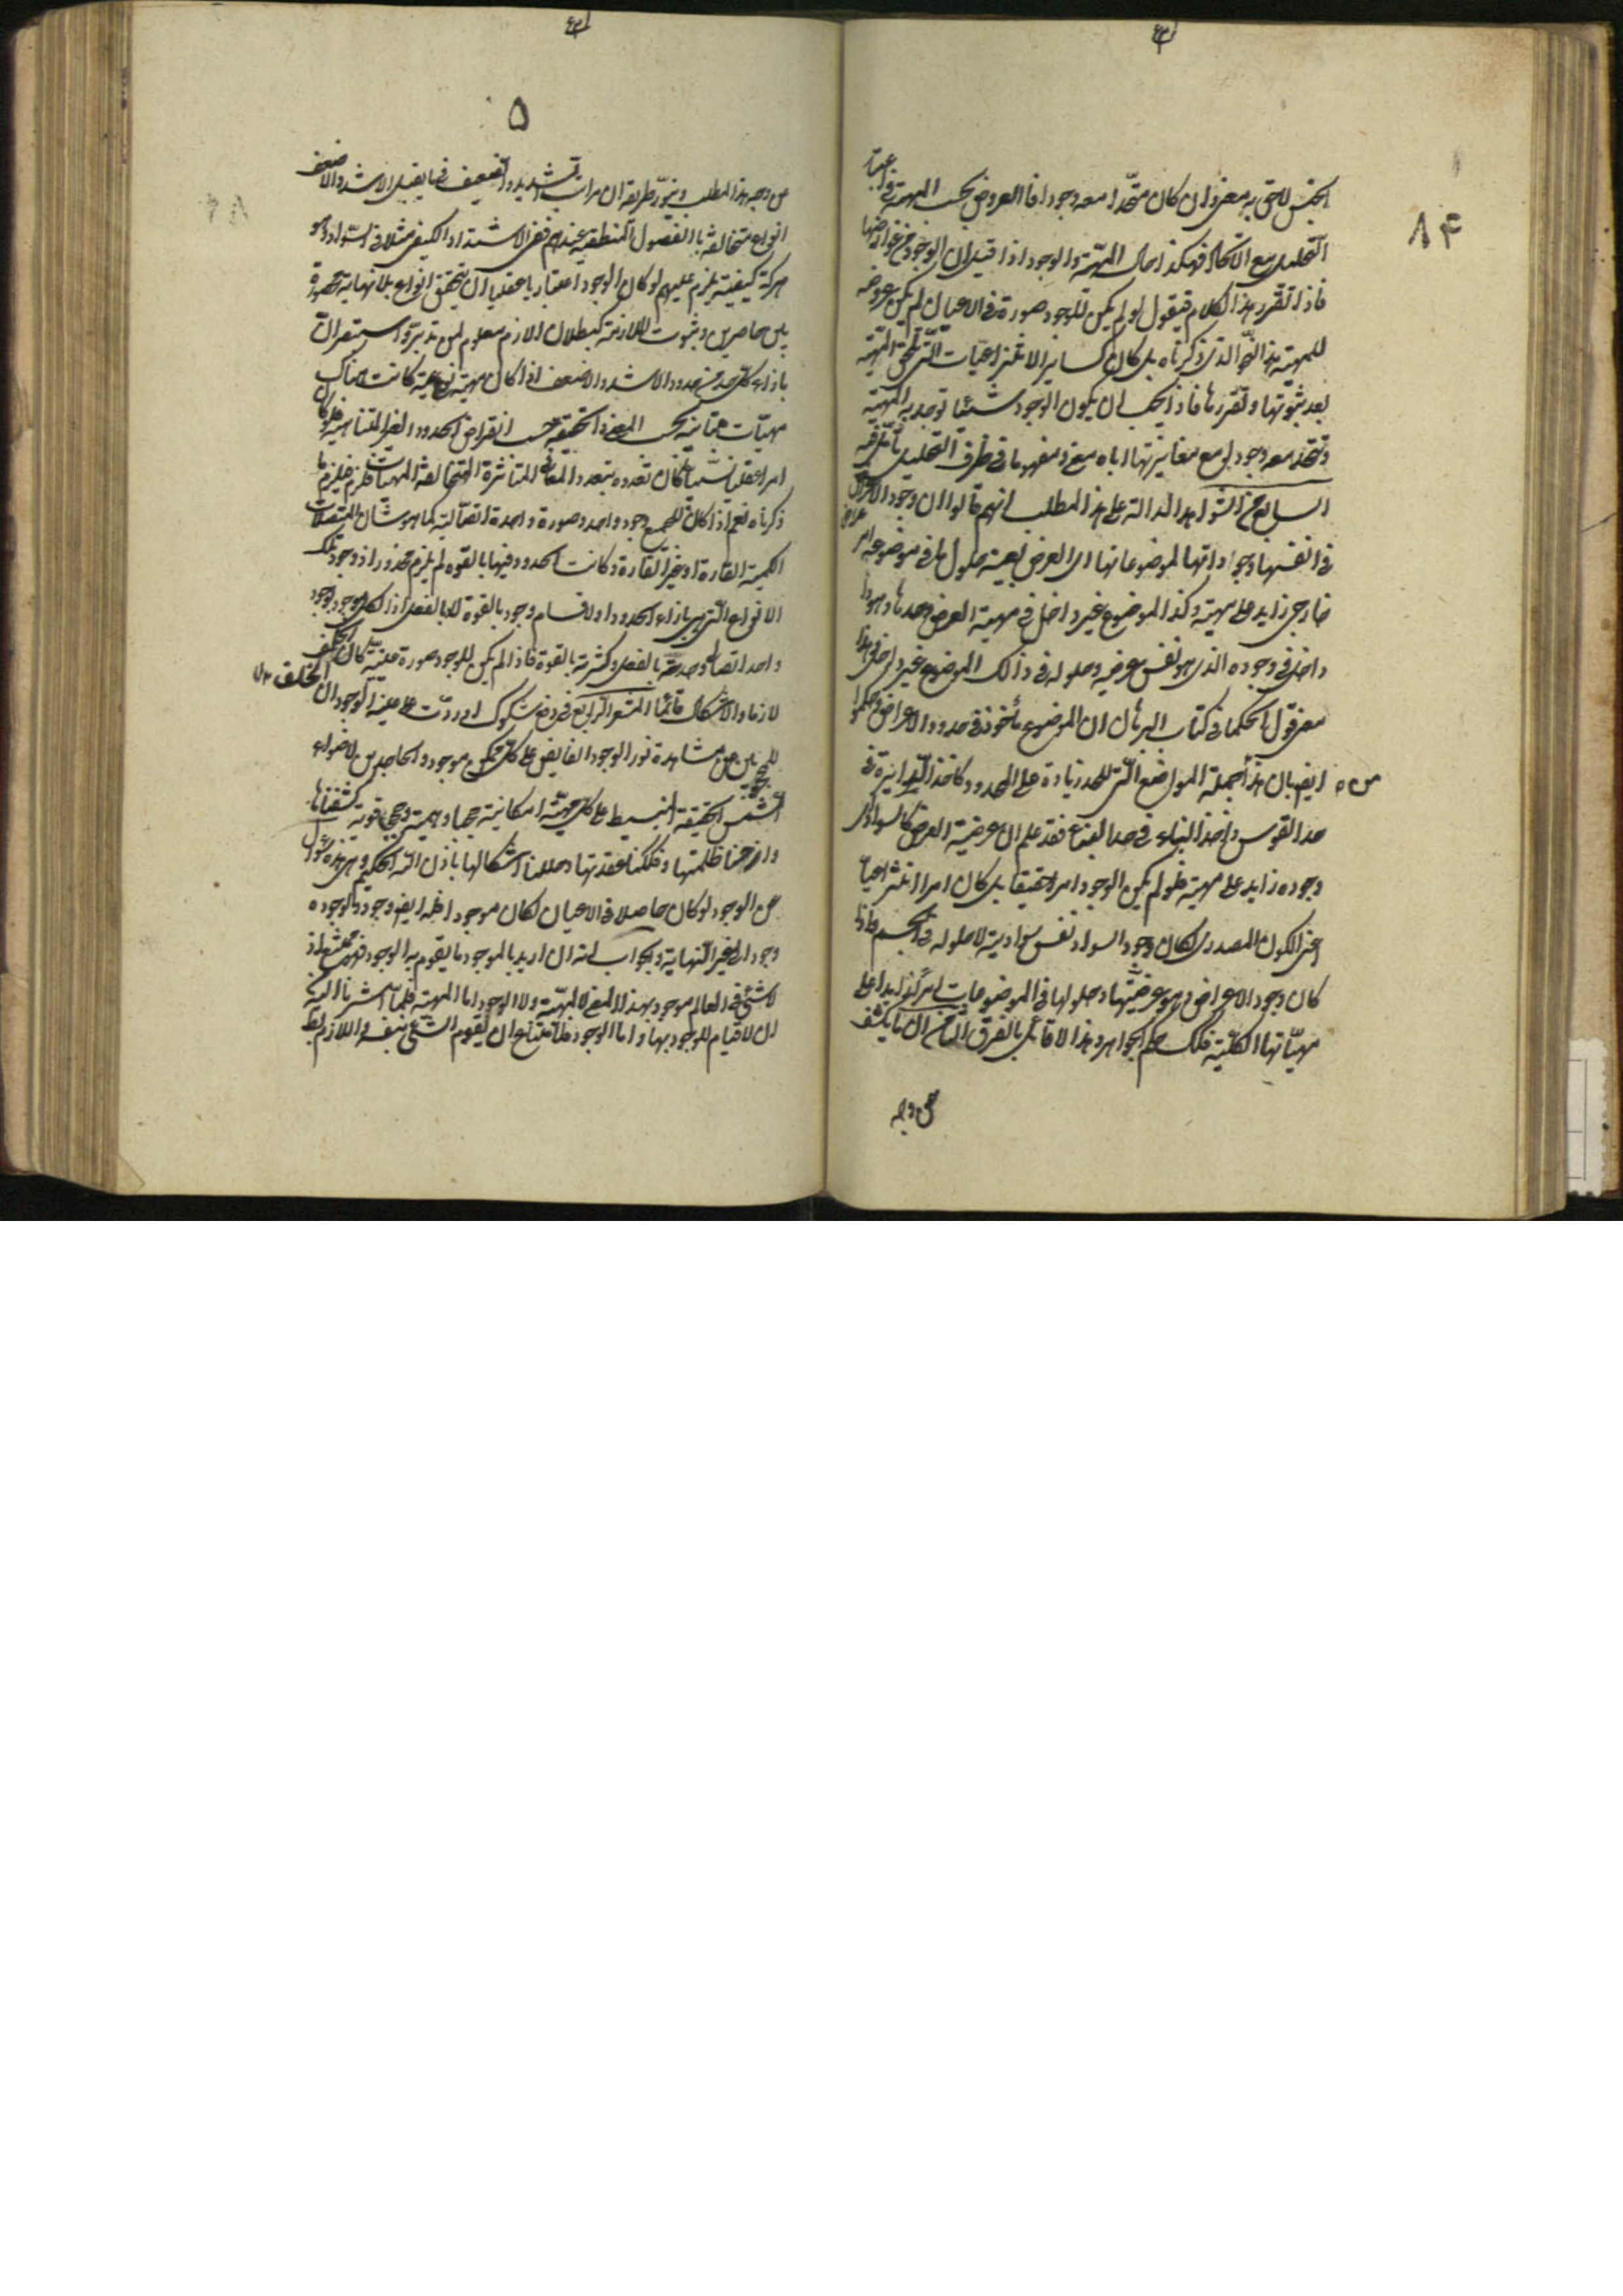 ٨۴
الجنس لاحق به معنى وان كان متحدا معه وجودا فالعروض بحسب المهية فى اعتبار
التحليل مع الاتحاد فهكذا حال المهية والوجود اذا قيل ان الوجود من عوارضها
فاذا تقرر هذا الكلام فيقول لو لم يكن للوجود صورة فى الاعيان لم يكن عروضه
للمهية هذا النحو الذى ذكرناه بل كان كساير الانتزاعيات التى تلحق المهية
بعد ثبوتها وتقررها فاذن يجب ان يكون الوجود شيئا توجد به المهية
وتتحد معه وجودا مع مغايرتها اياه معنى ومفهوما فى ظرف التحليل تأمل فيه
السابع من الشواهد الدالة على هذا المطلب انهم قالوا ان وجود الاعراض
فى انفسها وجوداتها لموضوعاتها اى العرض بعينه حلوله فى موضوعه امر
خارجى زايد على مهيته وكذا الموضوع غير داخل فى مهية العرض وحدها وهو
داخل فى وجوده الذى هو نفس عرضيته وحلوله فى ذلك الموضوع غير داخل
معنى قول الحكما فى كتاب البرهان ان الموضوع مأخوذ فى حدود الاعراض وحكموا
ايضا بان هذا من جملة المواضع التى للحد زيادة على المحدود كاخذ الدايرة فى
حد القوس واخذ البناء فى حد البناء فقد علم ان عرضية العرض كالسواد اى
وجوده زايد على مهيته فلو لم يكن الوجود امرا حقيقيا بل كان امرا انتزاعيا
اعنى الكون المصدرى لكان وجود السواد نفس سواديته لا حلوله فى الجسم واذا
كان وجود الاعراض وهو عرضيتها وحلولها فى الموضوعات امرا زايدا على
مهياتها الكلية فكذلك حكم الجواهر وهذا لا قائل بالفرق الثامن ان ما يكشف
عن وجه
٥
عن وجه هذا المطلب وينور طريقه ان مراتب الشديد والضعيف فيما يقبل الاشد والاضعف
انواع متخالفة بالفصول المنطقية عندهم ففى الاشتداد الكيفى مثلا فى السواد وهو
حركة كيفية يلزم عليهم لو كان الوجود اعتباريا عقليا ان يتحقق انواع بلا نهاية محصورة
بين حاصرين وثبوت الملازمة كبطلان اللازم معلوم لمن تدبر واستبصر ان
بازاء كل حد من حدود الاشد والاضعف اذا كان مهية نوعية كانت هناك
مهيات متباينة بحسب المعنى والحقيقة حسب انفراض الحدود الغير المتناهية فلو كان
امرا عقليا نسبيا كان تعدده بتعدد المعانى المتمايزة المتخالفة المهيات فلزم فيلزم ما
ذكرناه نعم اذا كان للجميع وجود واحد وصورة واحدة اتصالية كما هو شان المتصلات
الكمية القارة او غير القارة وكانت الحدود فيها بالقوة لم يلزم محذورا اذ وجود تلك
الانواع التى هى بازاء الحدود او الاقسام وجود بالقوة لا بالفعل اذ الكل موجود بوجود
واحد اتصالى وحدته بالفعل وكثرته بالقوة فاذا لم يكن للوجود صورة عينية كان الخلف
لازما والاشكال قائما المشعر الرابع فى دفع شكوك اوردت على عينية الوجود ان
للمحجوبين عن مشاهدة نور الوجود الفايض على كل ممكن موجود والجاحدين لاضواء
شمس الحقيقة المنبسط على كل مهية امكانية حجبا وهمية وحجبا قوية كشفناها
وازحنا ظلمتها وفككنا عقدتها وحللنا اشكالها باذن الله الحكيم وهى هذه سؤال
عن الوجود لو كان حاصلا فى الاعيان لكان موجودا فله ايضا وجود ولوجوده
وجود الى غير النهاية وجواب انه ان اريد بالموجود ما يقوم به الوجود فهو ممتنع اذ
لا شئ فى العالم موجود بهذا المعنى لا المهية ولا الوجود اما المهية فلما اشرنا اليه
ان لا قيام للوجود بها واما الوجود فلامتناع ان يقوم الشئ بنفسه واللازم باطل